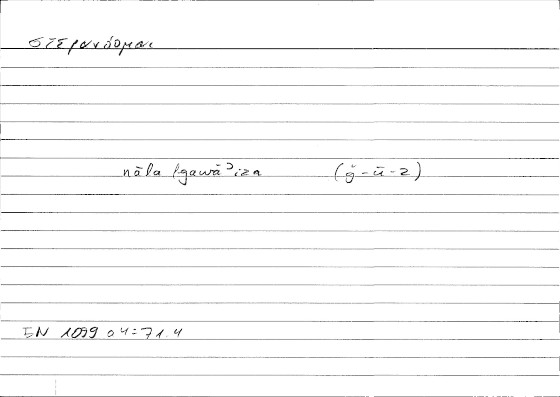 στεφανόομαι
nāla lgawāʾiza (ǧ-ū-z)
EN 1099 04 = 71.4